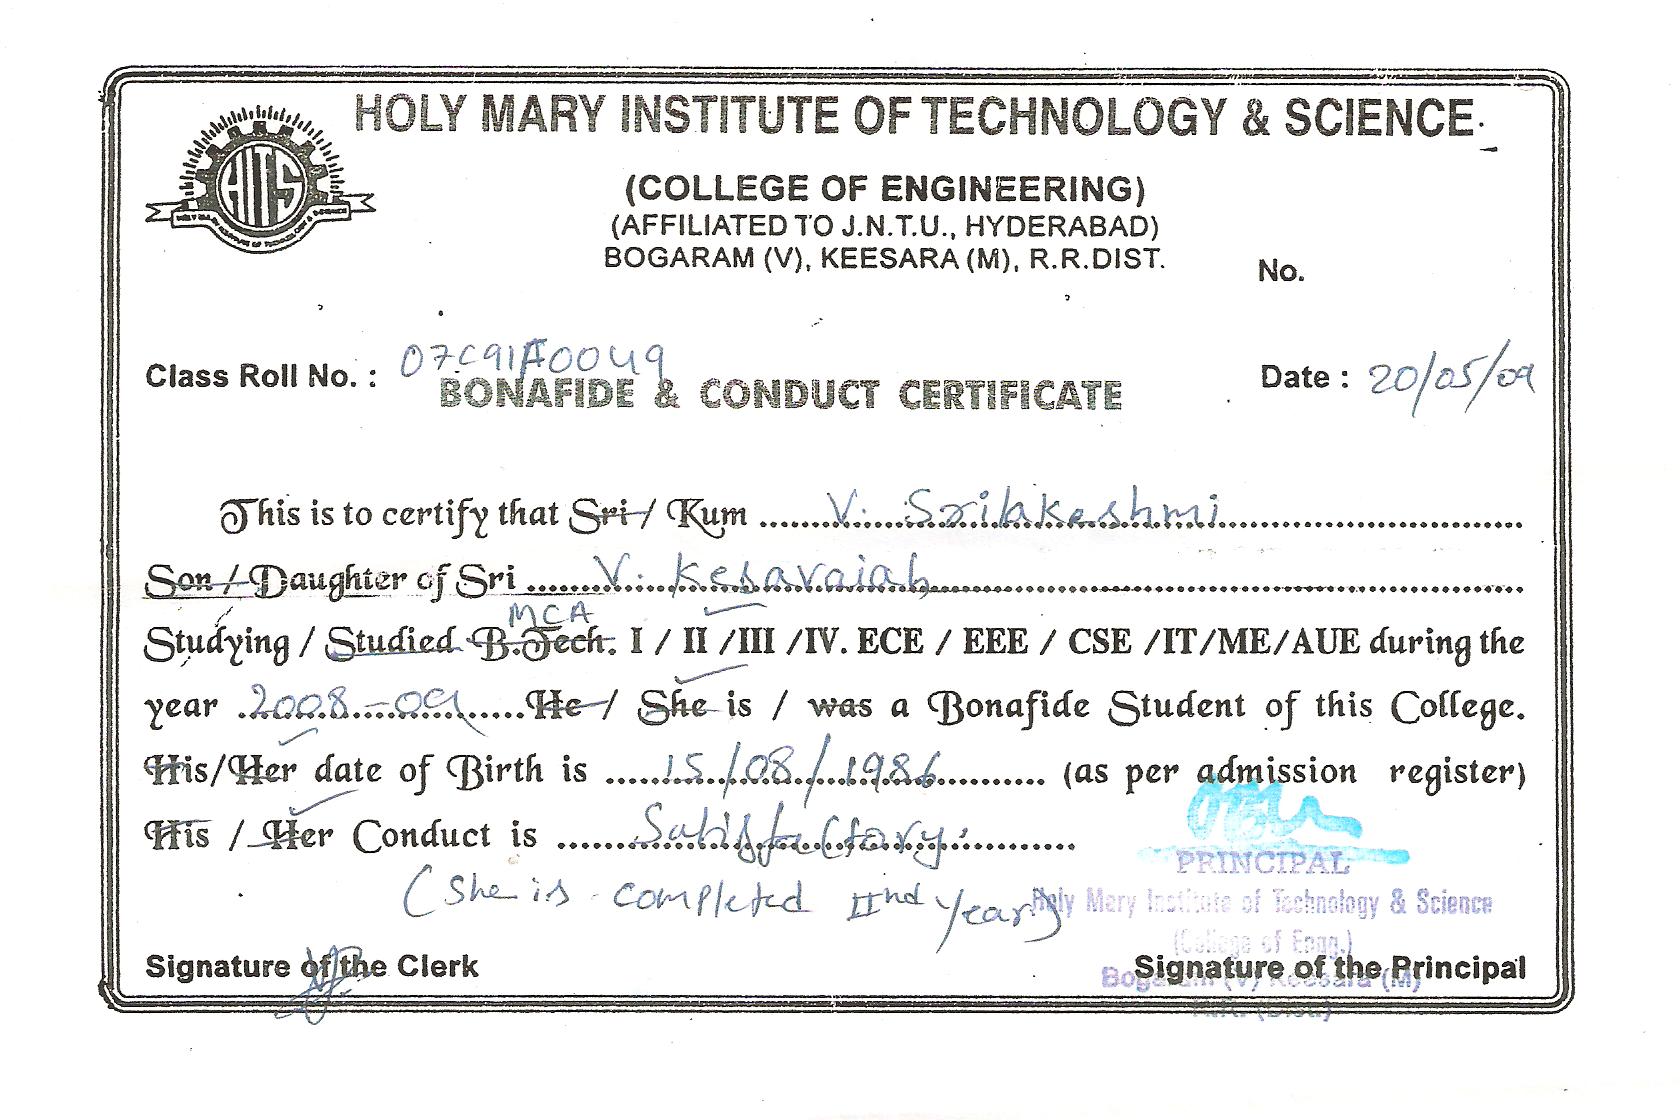 HOLY MARY INSTITUTE OF TECHNOLOGY & SCIENCE
HITS
(COLLEGE OF ENGINEERING)
(AFFILIATED TO J.N.T.U., HYDERABAD)
BOGARAM (V), KEESARA (M), R.R.DIST.
No.
Class Roll No. : 07C91F0049
Date : 20/05/09
BONAFIDE & CONDUCT CERTIFICATE
This is to certify that Sri / Kum V. Srilakshmi
Son / Daughter of Sri V. Kesavaiah
MCA
Studying / Studied B.Tech. I / II /III /IV. ECE / EEE / CSE /IT/ME/AUE during the
year 2008-09 He / She is / was a Bonafide Student of this College.
His/Her date of Birth is 15/08/1986 (as per admission register)
His / Her Conduct is Satisfactory.
PRINCIPAL
(She is completed IInd Year)
Holy Mary Institute of Technology & Science
(College of Engg.)
Signature of the Clerk
Signature of the Principal
Bogaram (V) Keesara (M)